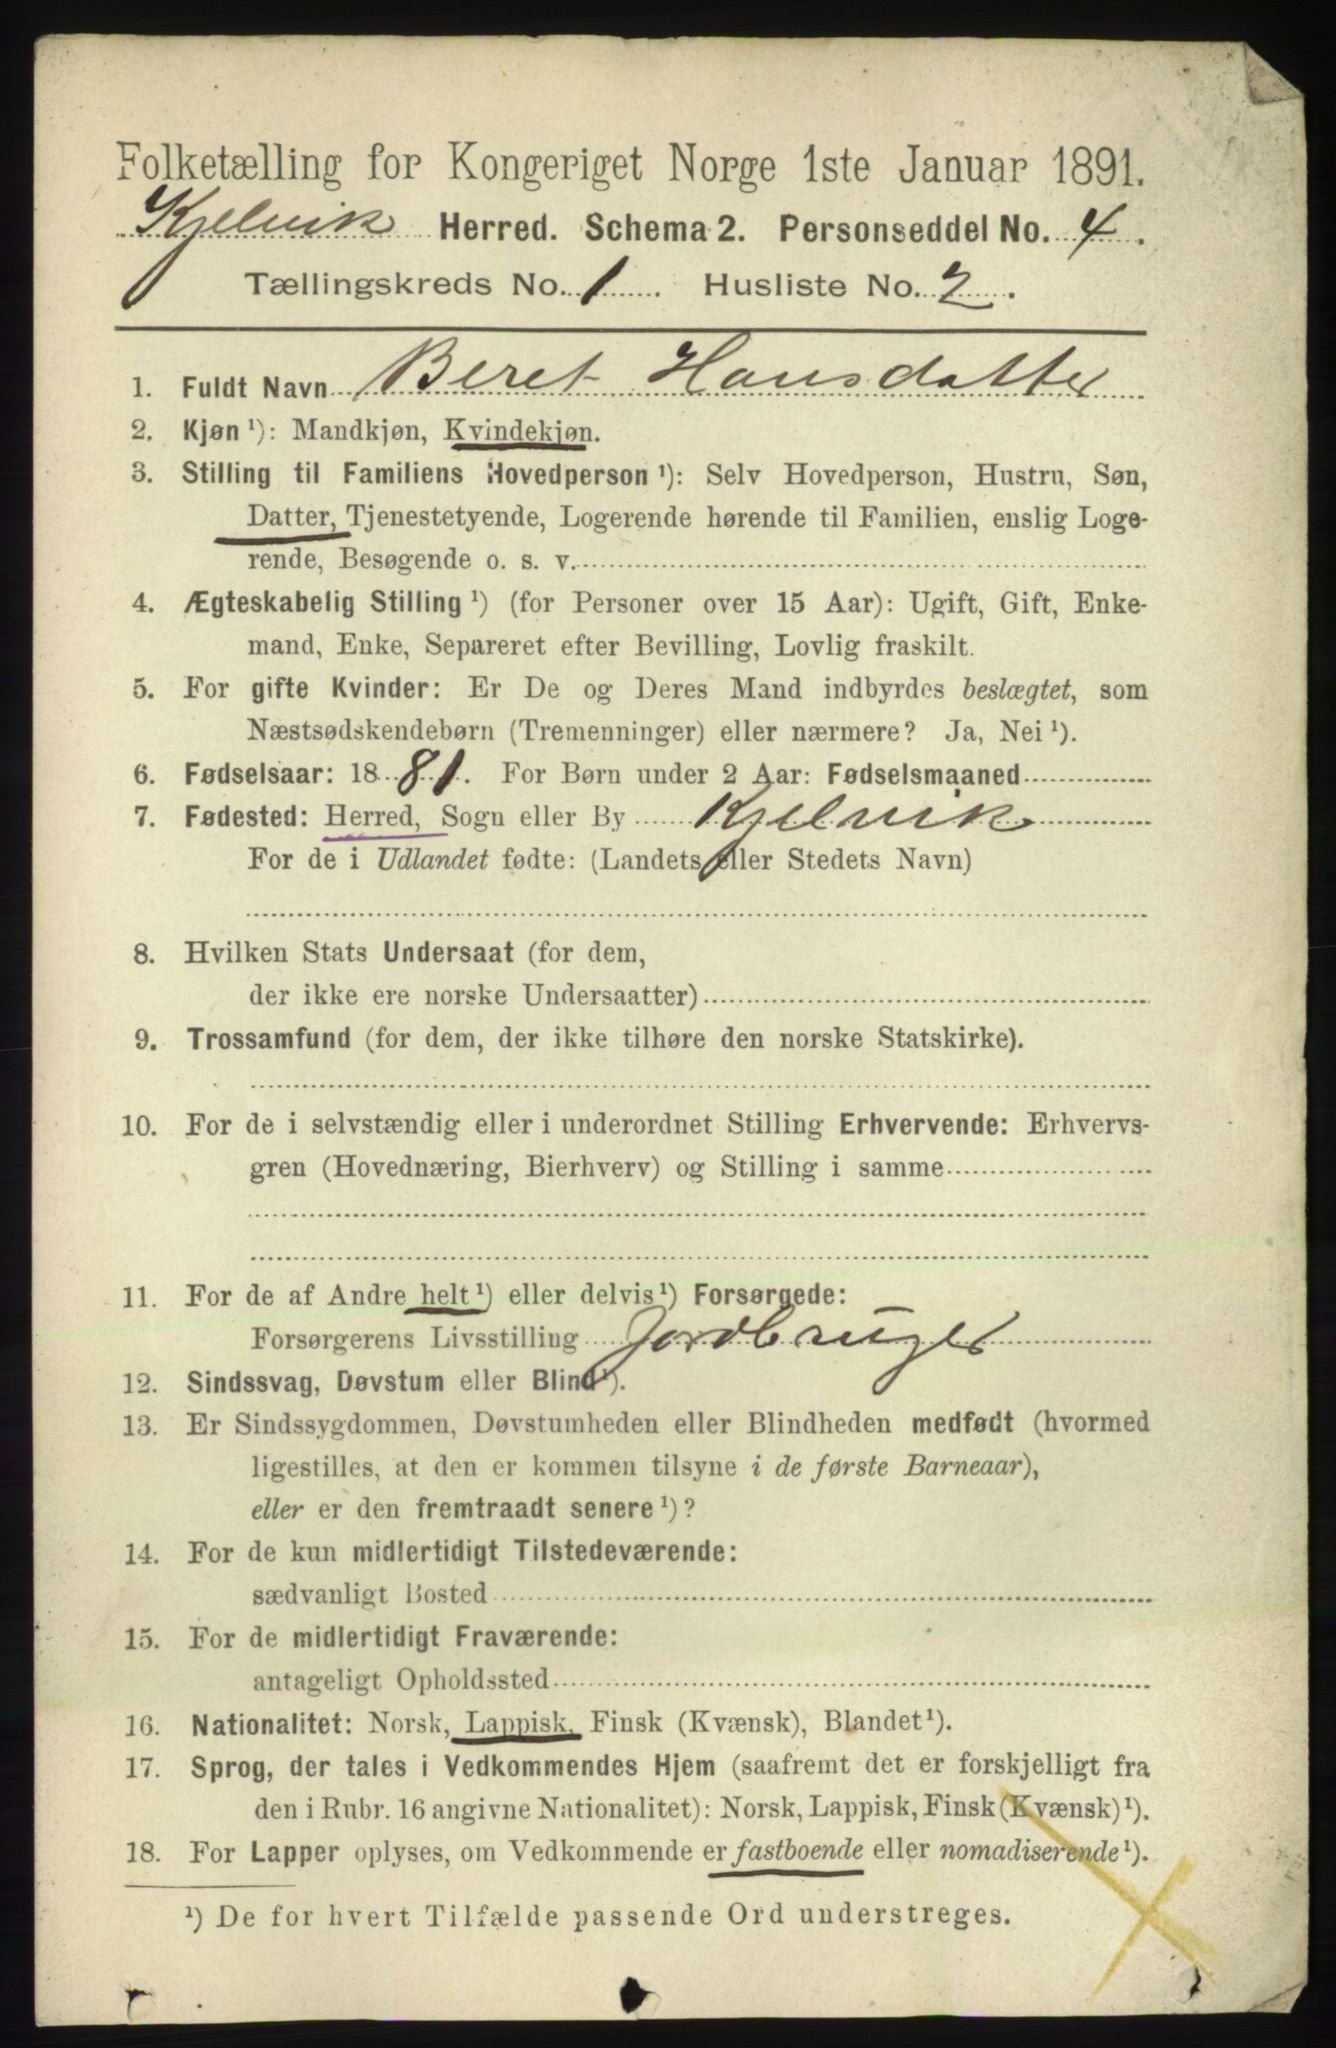 Folketælling for Kongeriget Norge 1ste Januar 1891.
Kjelvik Herred. Schema 2. Personseddel No. 4.
Tællingskreds No. 1. Husliste No. 2.
1. Fuldt Navn Beret Hansdatter
2. Kjøn ¹): Mandkjøn, Kvindekjøn.
3. Stilling til Familiens Hovedperson ¹): Selv Hovedperson, Hustru, Søn,
Datter, Tjenestetyende, Logerende hørende til Familien, enslig Loge-
rende, Besøgende o. s. v.
4. Ægteskabelig Stilling ¹) (for Personer over 15 Aar): Ugift, Gift, Enke-
mand, Enke, Separeret efter Bevilling, Lovlig fraskilt.
5. For gifte Kvinder: Er De og Deres Mand indbyrdes beslægtet, som
Næstsødskendebørn (Tremenninger) eller nærmere? Ja, Nei ¹).
6. Fødselsaar: 1881. For Børn under 2 Aar: Fødselsmaaned
7. Fødested: Herred, Sogn eller By Kjelvik
For de i Udlandet fødte: (Landets eller Stedets Navn)
8. Hvilken Stats Undersaat (for dem,
der ikke ere norske Undersaatter)
9. Trossamfund (for dem, der ikke tilhøre den norske Statskirke).
10. For de i selvstændig eller i underordnet Stilling Erhvervende: Erhvervs-
gren (Hovednæring, Bierhverv) og Stilling i samme
11. For de af Andre helt ¹) eller delvis ¹) Forsørgede:
Forsørgerens Livsstilling Jordbruger
12. Sindssvag, Døvstum eller Blind ¹).
13. Er Sindssygdommen, Døvstumheden eller Blindheden medfødt (hvormed
ligestilles, at den er kommen tilsyne i de første Barneaar),
eller er den fremtraadt senere ¹)?
14. For de kun midlertidigt Tilstedeværende:
sædvanligt Bosted
15. For de midlertidigt Fraværende:
antageligt Opholdssted
16. Nationalitet: Norsk, Lappisk, Finsk (Kvænsk), Blandet ¹).
17. Sprog, der tales i Vedkommendes Hjem (saafremt det er forskjelligt fra
den i Rubr. 16 angivne Nationalitet): Norsk, Lappisk, Finsk (Kvænsk) ¹).
18. For Lapper oplyses, om Vedkommende er fastboende eller nomadiserende ¹).
¹) De for hvert Tilfælde passende Ord understreges.